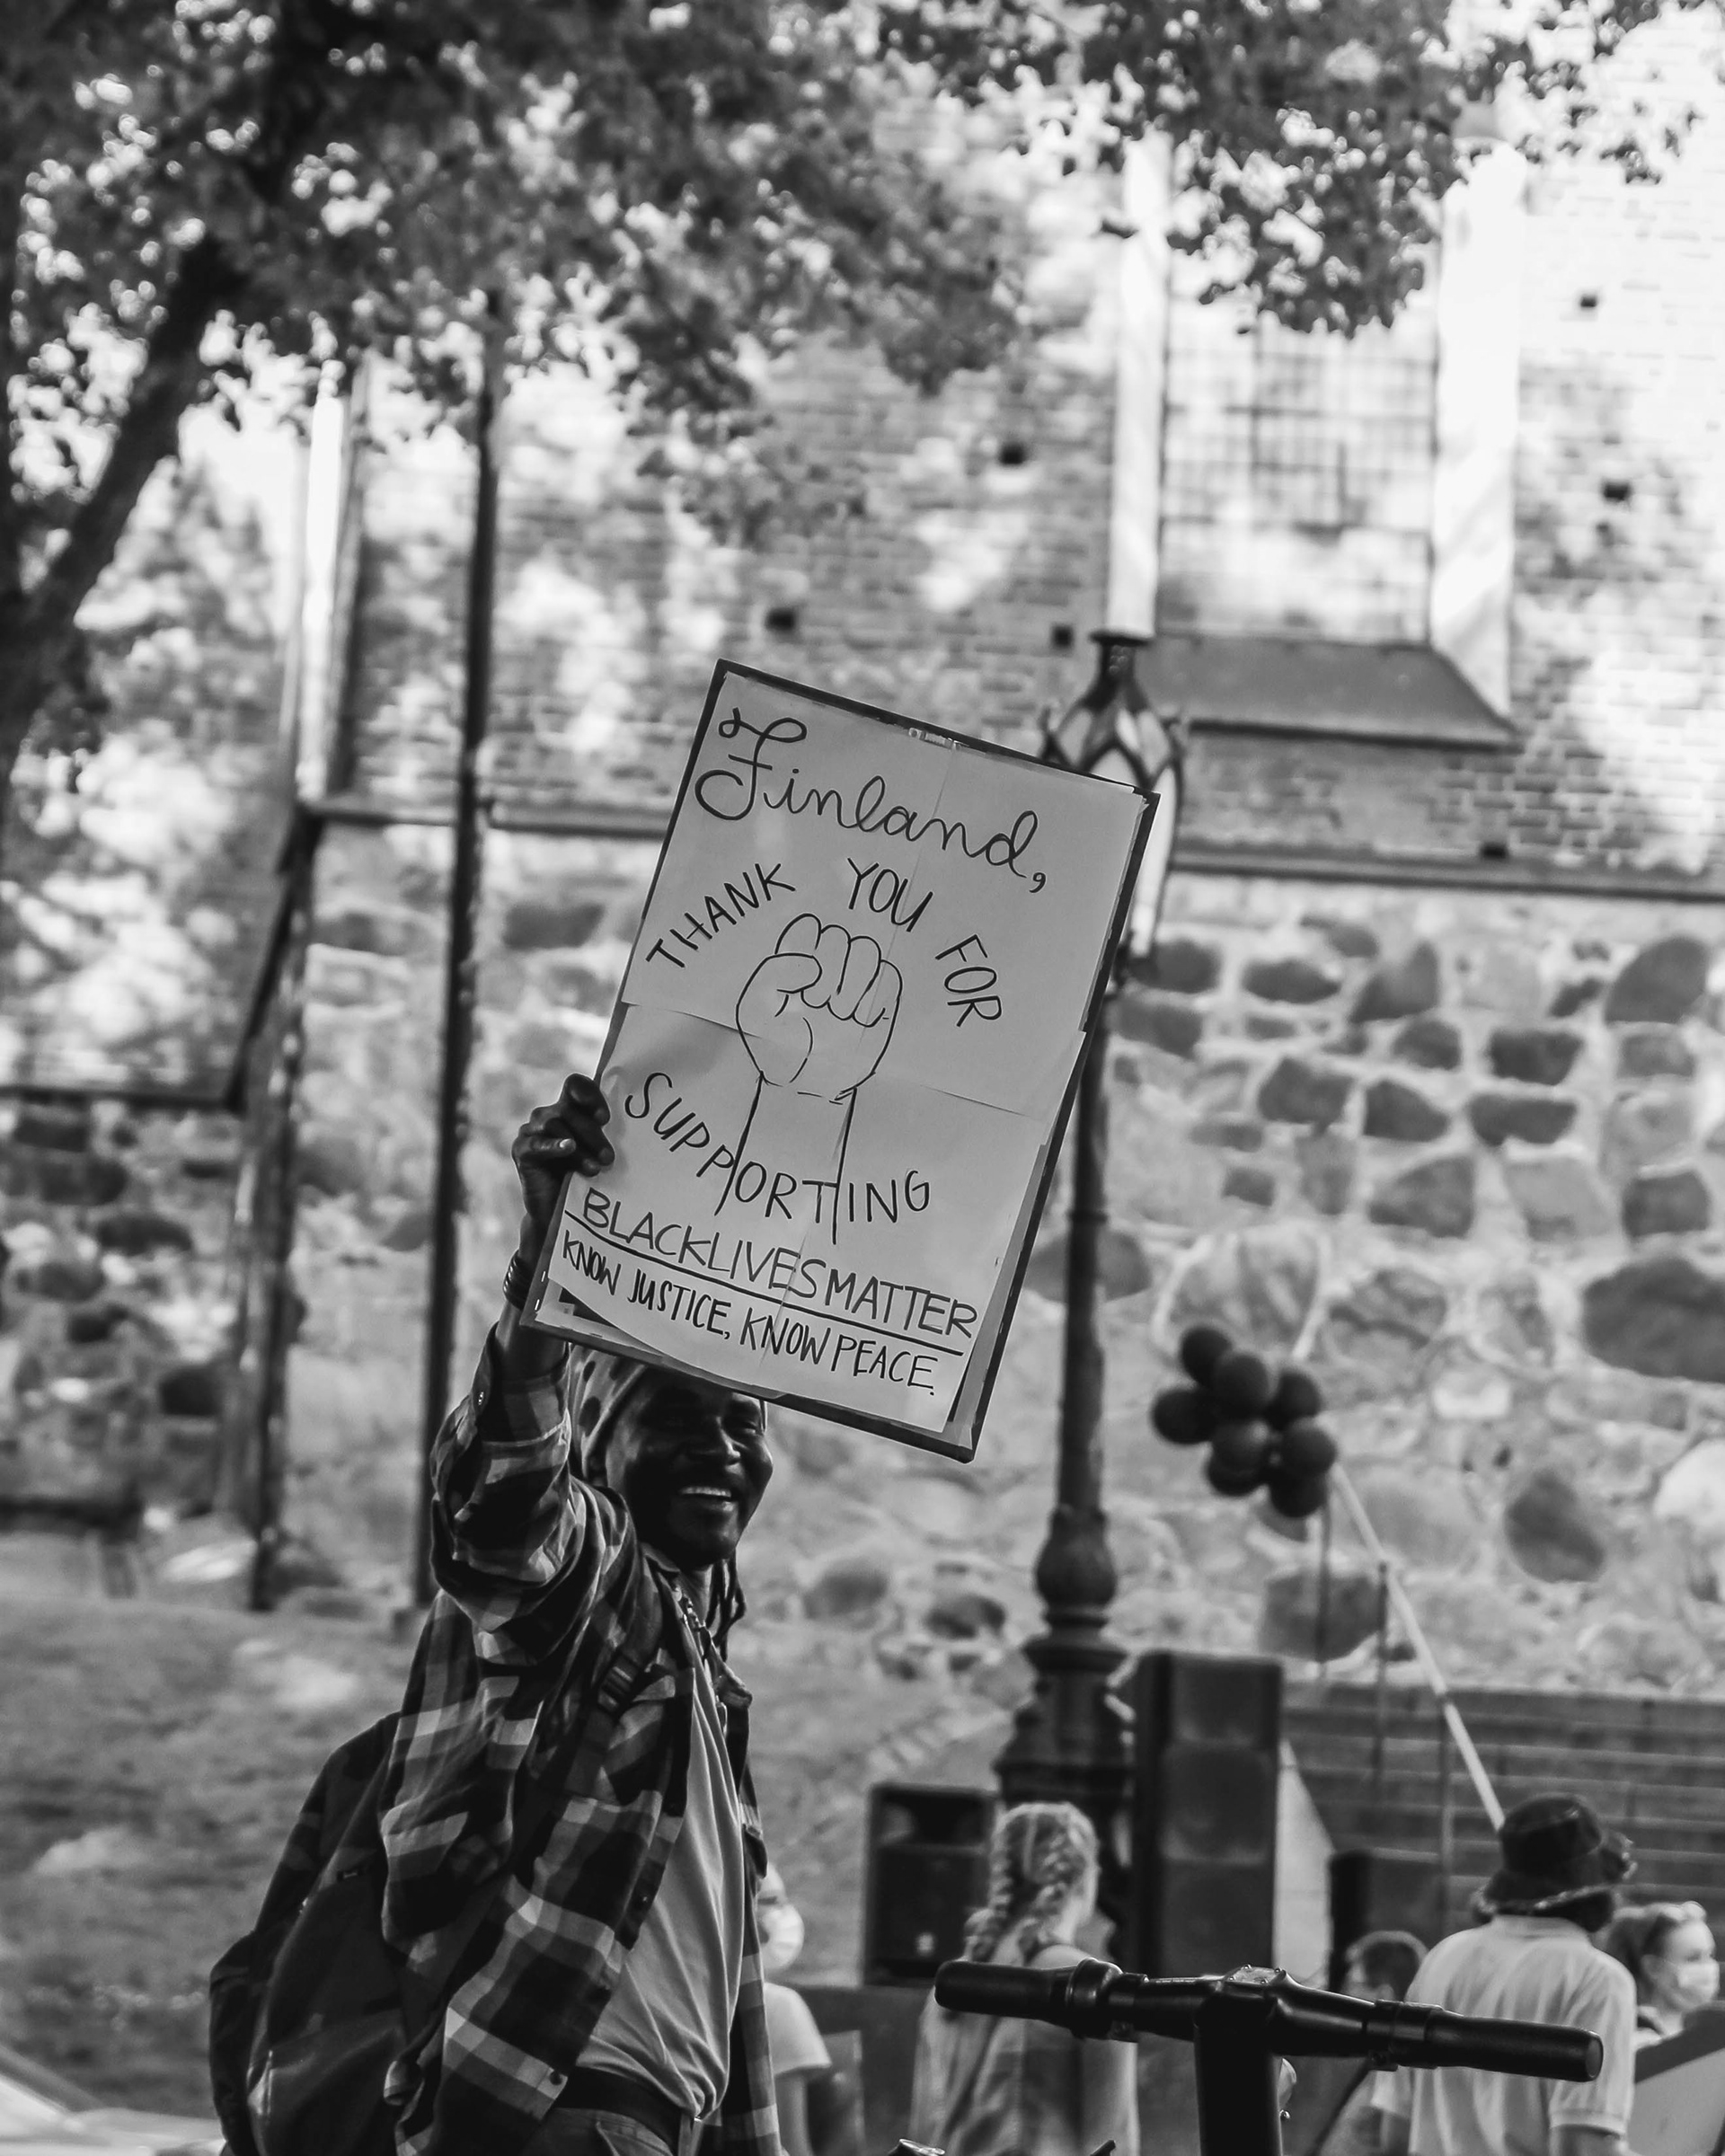 Finland,
THANK YOU FOR
SUPPORTING
BLACKLIVESMATTER
KNOW JUSTICE, KNOW PEACE.